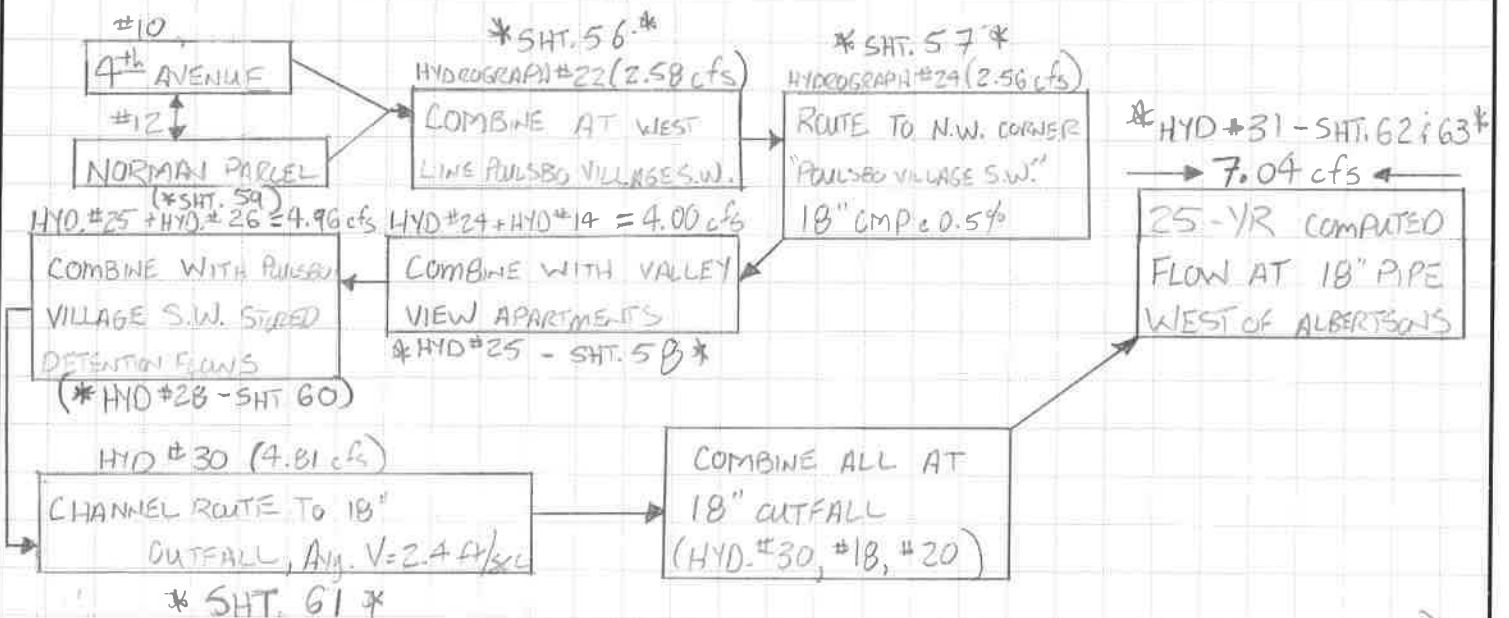 #10
4th AVENUE
#12
NORMAN PARCEL
(*SHT. 59)
*SHT. 56*
HYDROGRAPH #22 (2.58 cfs)
COMBINE AT WEST
LINE POULSBO VILLAGE S.W.
*SHT. 57*
HYDROGRAPH #24 (2.56 cfs)
ROUTE TO N.W. CORNER
"POULSBO VILLAGE S.W."
18" CMP @ 0.5%
HYD #24 + HYD #14 = 4.00 cfs
COMBINE WITH VALLEY
VIEW APARTMENTS
*HYD #25 - SHT. 58*
HYD. #25 + HYD. #26 = 4.96 cfs
COMBINE WITH POULSBO
VILLAGE S.W. STORED
DETENTION FLOWS
(*HYD #28 - SHT 60)
HYD #30 (4.81 cfs)
CHANNEL ROUTE TO 18"
OUTFALL, Avg. V=2.4 ft/sec
*SHT. 61*
COMBINE ALL AT
18" OUTFALL
(HYD. #30, #18, #20)
*HYD #31 - SHT. 62 & 63*
7.04 cfs
25-YR COMPUTED
FLOW AT 18" PIPE
WEST OF ALBERTSONS